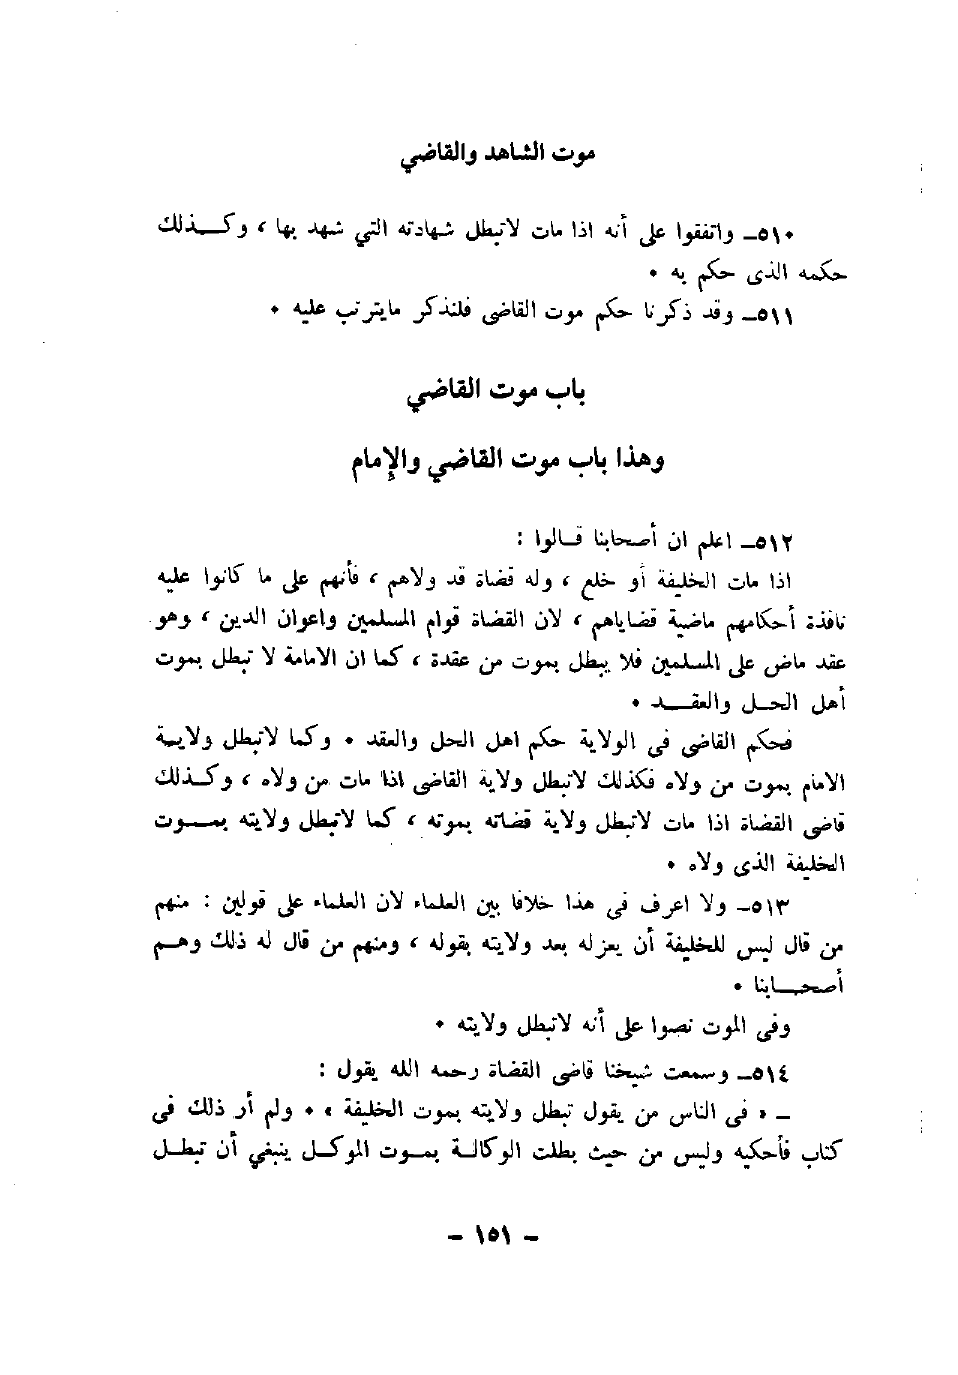 موت الشاهد والقاضي
٥١٠ـ واتفقوا على أنه اذا مات لاتبطل شهادته التي شهد بها ، وكـــذلك
حكمه الذى حكم به ٠
٥١١ـ وقد ذكرنا حكم موت القاضى فلنذكر مايترتب عليه ٠
باب موت القاضي
وهذا باب موت القاضي والإمام
٥١٢ـ اعلم ان أصحابنا قــالوا :
اذا مات الخليفة أو خلع ، وله قضاة قد ولاهم ، فأنهم على ما كانوا عليه
نافذة أحكامهم ماضية قضاياهم ، لان القضاة قوام المسلمين واعوان الدين ، وهو
عقد ماض على المسلمين فلا يبطل بموت من عقدة ، كما ان الامامة لا تبطل بموت
أهل الحــل والعقـــد ٠
فحكم القاضى فى الولاية حكم اهل الحل والعقد ٠ وكما لاتبطل ولايـــة
الامام بموت من ولاه فكذلك لاتبطل ولاية القاضى اذا مات من ولاه ، وكــذلك
قاضى القضاة اذا مات لاتبطل ولاية قضاته بموته ، كما لاتبطل ولايته بمـــوت
الخليفة الذى ولاه ٠
٥١٣ـ ولا اعرف فى هذا خلافا بين العلماء لان العلماء على قولين : منهم
من قال ليس للخليفة أن يعزله بعد ولايته بقوله ، ومنهم من قال له ذلك وهــم
أصحـــابنا ٠
وفى الموت نصوا على أنه لاتبطل ولايته ٠
٥١٤ـ وسمعت شيخنا قاضى القضاة رحمه الله يقول :
ـ « فى الناس من يقول تبطل ولايته بموت الخليفة » ٠ ولم أر ذلك فى
كتاب فأحكيه وليس من حيث بطلت الوكالــة بمــوت الموكــل ينبغي أن تبطــل
ـ ١٥١ ـ